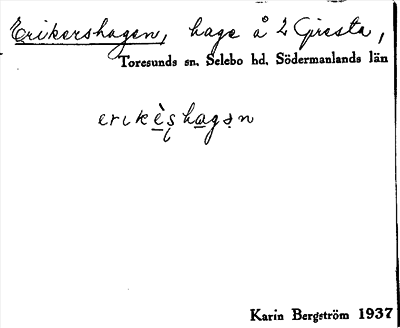 Erikershagen, hage å 2 Giresta,
Toresunds sn. Selebo hd. Södermanlands län
erikès̨hagən
Karin Bergström 1937